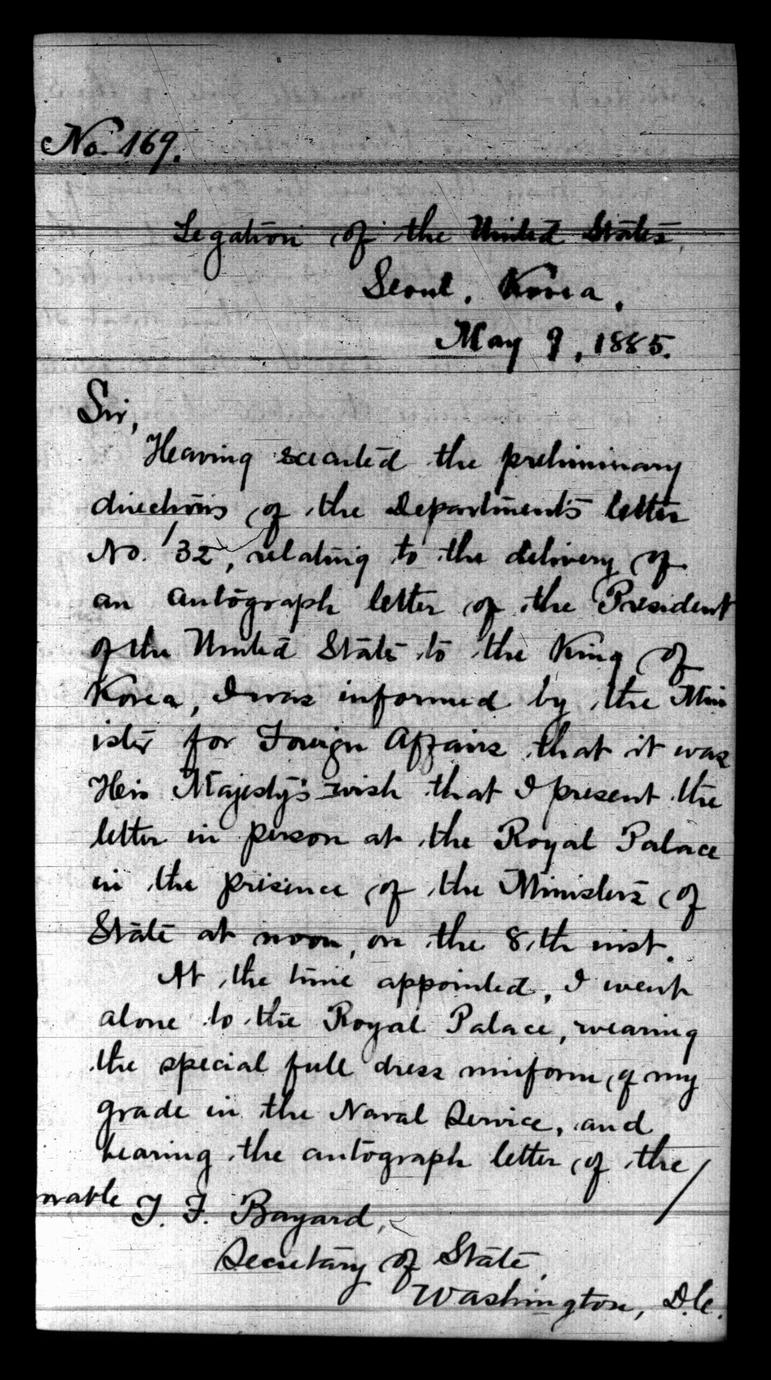 No. 169.
Legation of the United States,
Seoul, Korea,
May 9, 1885.
Sir,
Having executed the preliminary
directions of the Department's letter
No. 32, relating to the delivery of
an autograph letter of the President
of the United States to the King of
Korea, I was informed by the Min
ister for Foreign Affairs that it was
His Majesty's wish that I present the
letter in person at the Royal Palace
in the presence of the Ministers of
State at noon, on the 8th inst.
At the time appointed, I went
alone to the Royal Palace, wearing
the special full dress uniform of my
grade in the Naval Service, and
bearing the autograph letter of the
orable T. F. Bayard,
Secretary of State,
Washington, D.C.